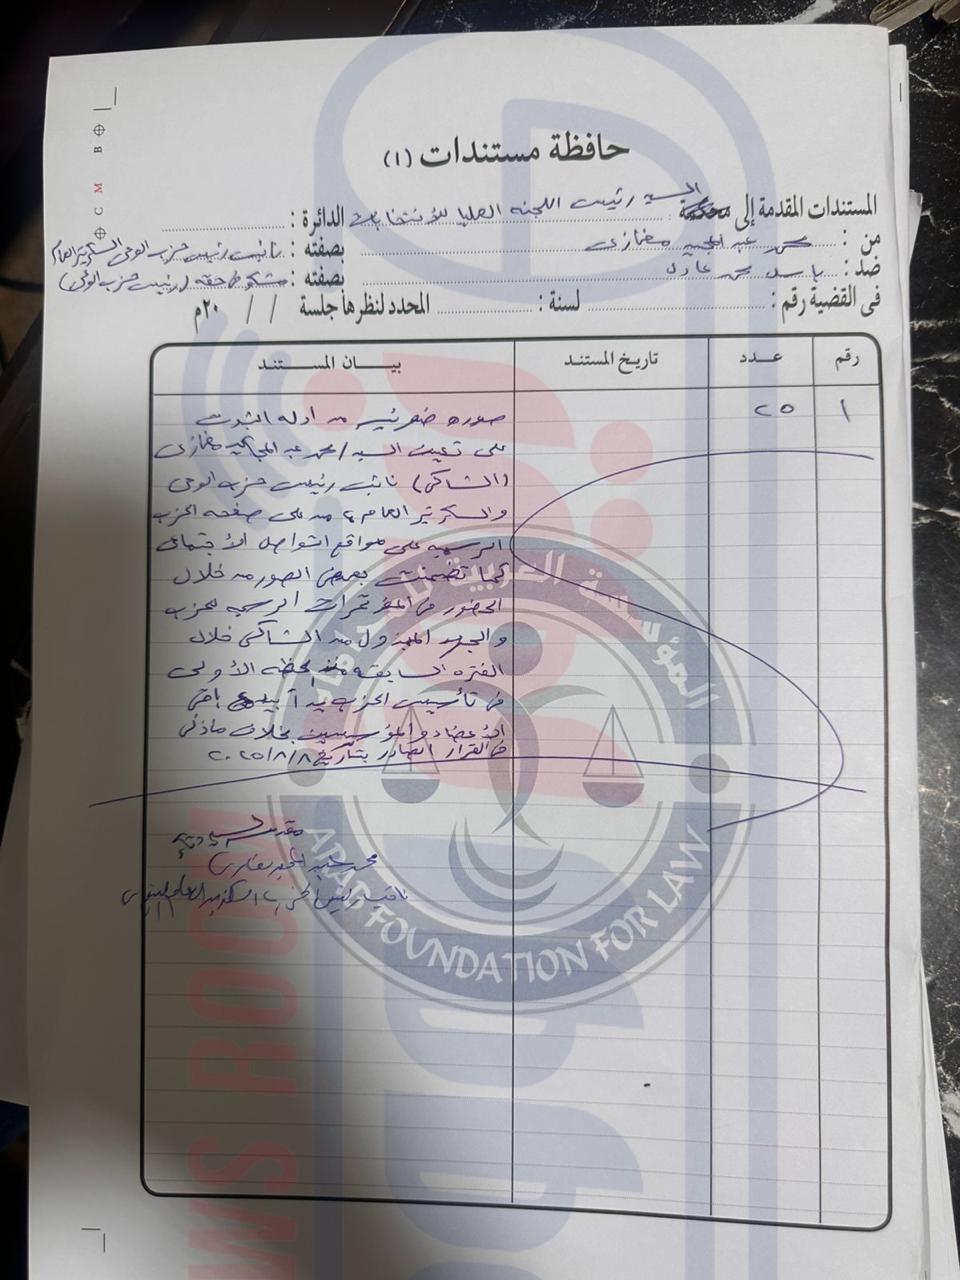 B C M
حافظة مستندات (١)
المستندات المقدمة إلى محكمة السيد رئيس اللجنه العليا للأنتخابات الدائرة :
من : محمد عبد المجيد مغازى بصفته : نائب رئيس حزب الوعى السكرتير العام
ضد : باسل محمد عادل بصفته : مشكو فى حقه (رئيس حزب الوعى)
فى القضية رقم : لسنة : المحدد لنظرها جلسة / / ٢٠م
رقم عـدد تاريخ المستند بيـــان المســـتند
١ ٢٥ صوره ضوئيه من ادله الثبوت
على تعيين السيد / محمد عبد المجيد مغازى
(الشاكى) نائب رئيس حزب الوعى
والسكرتير العام من على صفحه الحزب
الرسميه على مواقع التواصل الأجتماعى
كما تضمنت بعض الصور من خلال
الحضور فى المؤتمرات الرسميه للحزب
والجهد المبذول من الشاكى خلال
الفتره السابقه منذ لحظه الأولى
فى تأسيس الحزب باقى
الأعضاء والمؤسسين بخلاف ماذكر
فى القرار الصادر بتاريخ ٢٠٢٥/٨/٨
مقدمه
محمد عبد المجيد مغازى
نائب رئيس الحزب السكرتير العام
المؤسسة العربية
ARAB FOUNDATION FOR LAW
WS ROOM